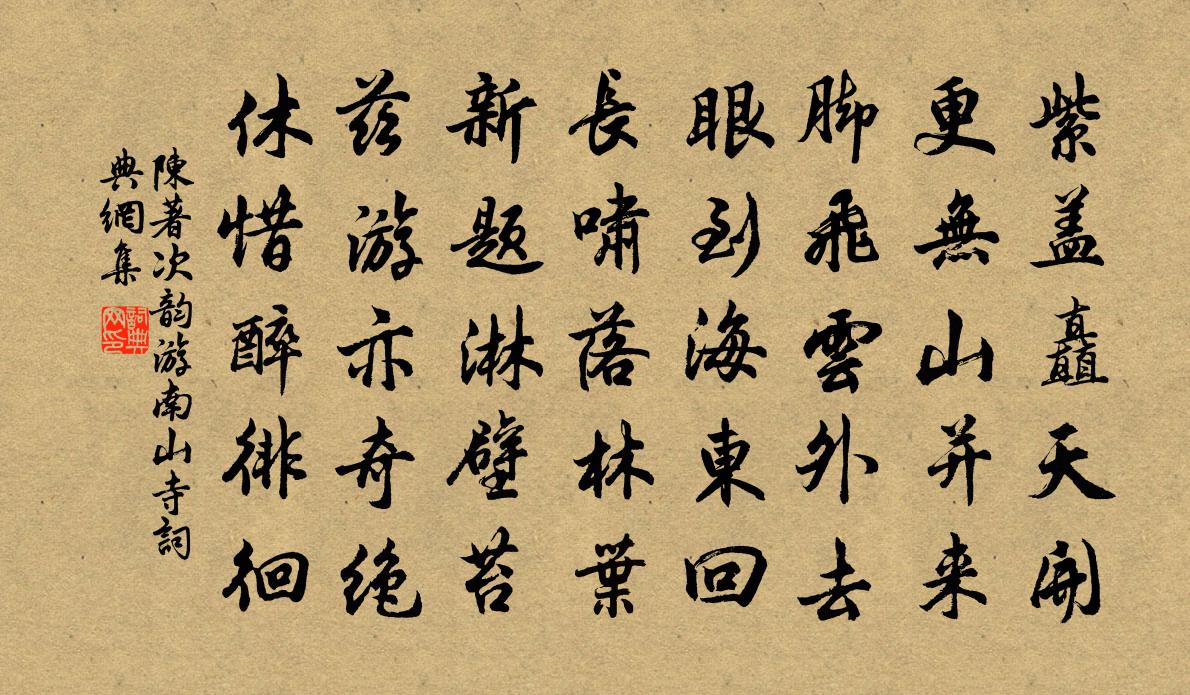 紫盖矗天開
更無山并来
脚飛雲外去
眼到海東回
長嘯落林葉
新題淋壁苔
茲游亦奇絶
休惜醉徘徊
陳著次韵游南山寺詞
典網集
詞典
网印